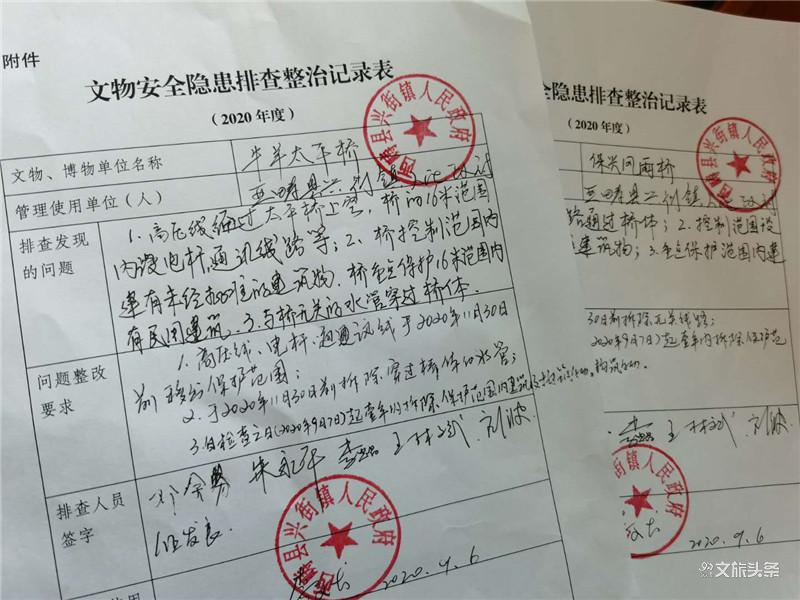 附件
文物安全隐患排查整治记录表
（2020年度）
文物、博物单位名称
牛羊太平桥
管理使用单位（人）
西畴县兴街镇人民政府
排查发现
的问题
1. 高压线经过太平桥上空，桥的16米范围
内设电杆,通讯线路等；2、桥控制范围内
建有未经批准的建筑物，桥重点保护16米范围内
有民用建筑。3.与桥无关的水管穿过桥体.
问题整改
要求
1. 高压线、电杆、通讯线于2020年11月30日
前移出保护范围；
2. 于2020年11月30日前拆除穿过桥体的水管；
3.自检查之日(2020年9月7日)起壹年内拆除保护范围内建筑
排查人员
签字
王林武 刘波
西畴县兴街镇人民政府
2020.9.6
全隐患排查整治记录表
（2020年度）
保兴风雨桥
西畴县兴街镇人民政府
路通过桥体；2.控制范围
建筑物；3.重点保护范围内建
30日前拆除无关线路；
2020年9月7日)起壹年内拆除保护范
构筑物.
王林武 刘波
西畴县兴街镇人民政府
2020.9.6
文旅头条